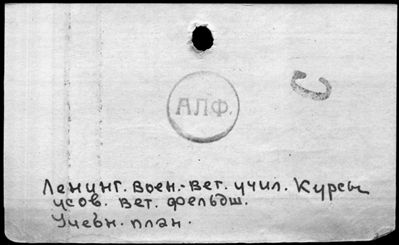 С
АЛФ.
Ленинг. Воен.-Вет. учил. Курсы
усов. вет. фельдш.
Учебн. план.